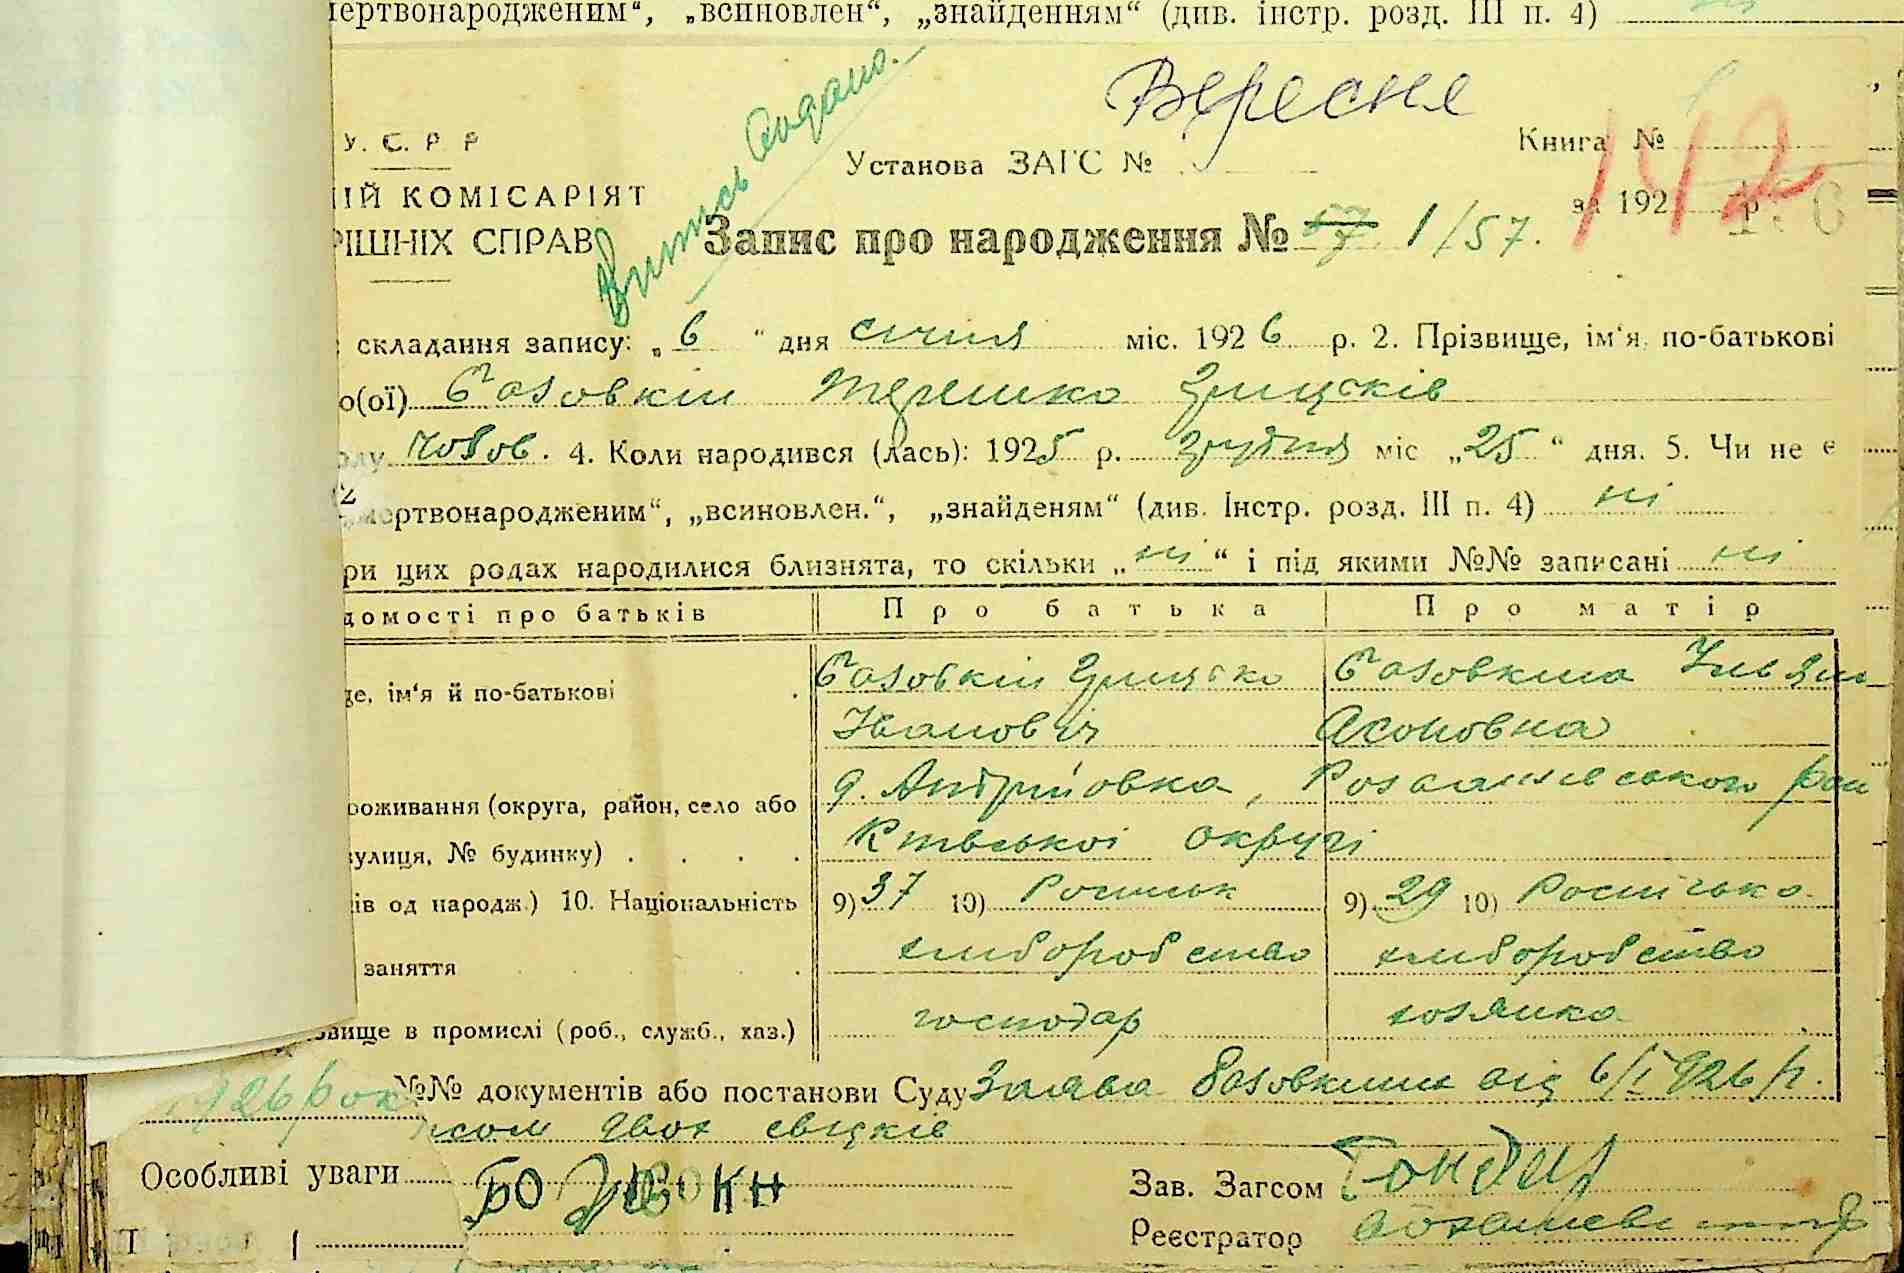 мертвонародженим“, „всиновлен“, „знайденням“ (див. інстр. розд. III п. 4) ні
Вересня
У. С. Р Р
Книга №
Установа ЗАГС №
142
ІЙ КОМІСАРІЯТ
за 192 р
РІШНІХ СПРАВ
Випись додано.
Запис про народження № 57 1/57.
складання запису: „6“ дня січня міс. 1926 р. 2. Прізвище, ім‘я, по-батькові
о(ої) Базовкін Терешко Грицьків
чолов. 4. Коли народився (лась): 1925 р. грудня міс „25“ дня. 5. Чи не є
„мертвонародженим“, „всиновлен.“, „знайденям“ (див. Інстр. розд. III п. 4) ні
ри цих родах народилися близнята, то скільки „ні“ і під якими №№ записані ні
домості про батьків Про батька Про матір
Базовкін Грицько Базовкина
ім‘я й по-батькові
Іванович
д. Андрійовка,
роживання (округа, район, село або
Київської округі
вулиця, № будинку)
ів од народж.) 10. Національність 9) 37 10) 9) 29 10)
хліборобство хліборобство
заняття
господар хозяйка
вище в промислі (роб., служб., хаз.)
1926 рок №№ документів або постанови Суду Заява Базовкина від 6/I 1926 р.
двох свідків
Особливі уваги
Зав. Загсом
Реєстратор